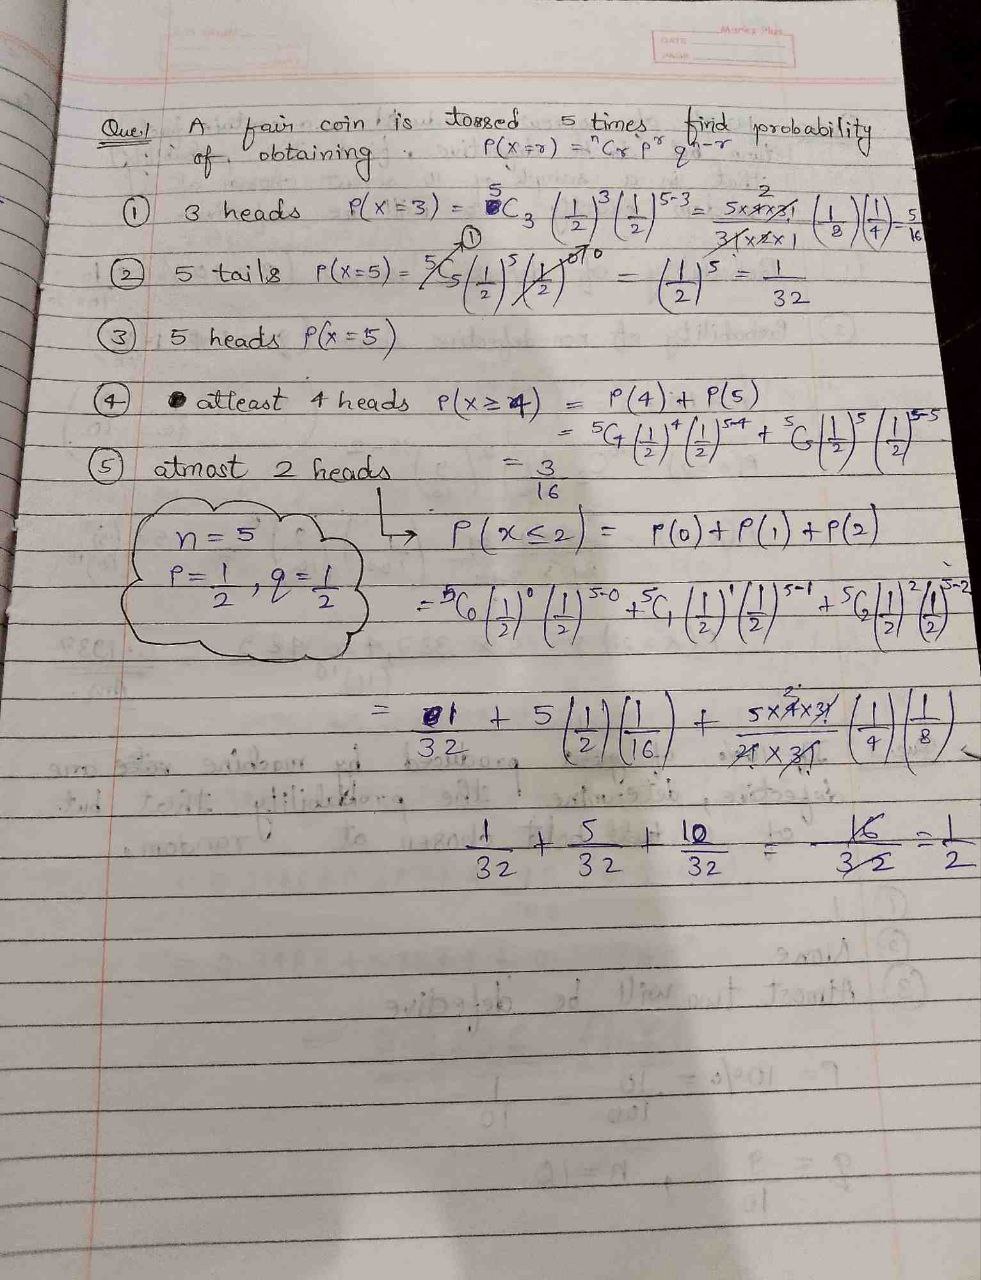 DATE
Que.1 A fair coin is tossed 5 times, find probability
of obtaining P(X=r) = ⁿCᵣ pʳ qⁿ⁻ʳ
① 3 heads P(X=3) = ⁵C₃ (1/2)³ (1/2)⁵⁻³ = 5×4×3!/3!×2×1 (1/8)(1/4) = 5/16
② 5 tails P(x=5) = ⁵C₅ (1/2)⁵ (1/2)⁰ = (1/2)⁵ = 1/32
③ 5 heads P(x=5)
④ atleast 4 heads P(x≥4) = P(4) + P(5)
= ⁵C₄ (1/2)⁴ (1/2)⁵⁻⁴ + ⁵C₅ (1/2)⁵ (1/2)⁵⁻⁵
⑤ atmost 2 heads = 3/16
n = 5 P(x≤2) = P(0) + P(1) + P(2)
P = 1/2, q = 1/2
= ⁵C₀ (1/2)⁰ (1/2)⁵⁻⁰ + ⁵C₁ (1/2)¹ (1/2)⁵⁻¹ + ⁵C₂ (1/2)² (1/2)⁵⁻²
= 1/32 + 5 (1/2)(1/16) + 5×4×3!/2!×3! (1/4)(1/8)
1/32 + 5/32 + 10/32 = 16/32 = 1/2